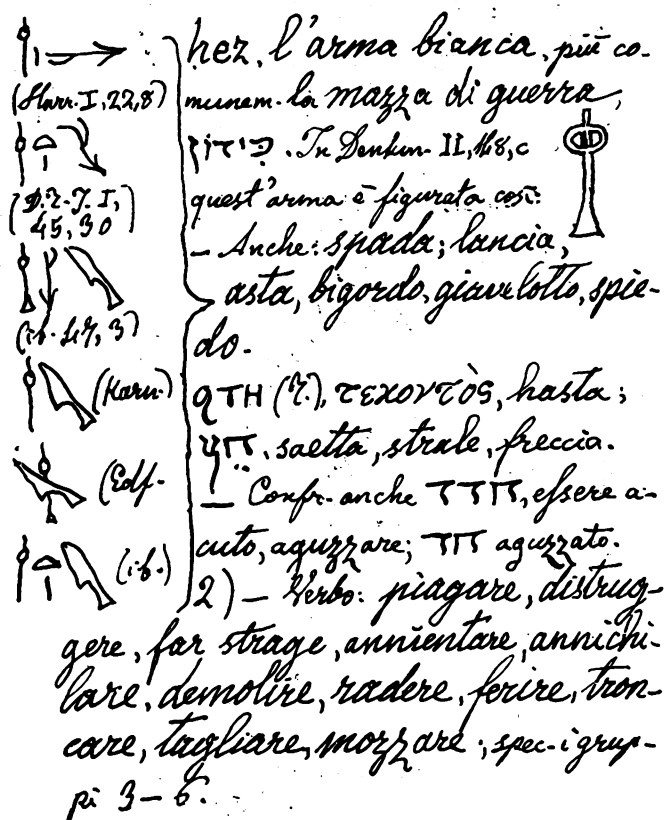 hez, l'arma bianca, più co-
(Harr. I, 22, 8) munem. la mazza di guerra,
כידון. In Denkm. II, 148, c
(D. T. I. I, 45, 30) quest'arma è figurata così:
— Anche: spada; lancia,
asta, bigordo, giavelotto, spie-
(ib. 47, 3) do.
(Karn.) ϥⲧⲏ (?), τεχοντὸς, hasta;
חץ, saetta, strale, freccia.
(Edf. — Confr. anche חדד, essere a-
cuto, aguzzare; חד aguzzato.
(ib.) 2) — Verbo: piagare, distrug-
gere, far strage, annientare, annichi-
lare, demolire, radere, ferire, tron-
care, tagliare, mozzare; spec. i grup-
pi 3-6.